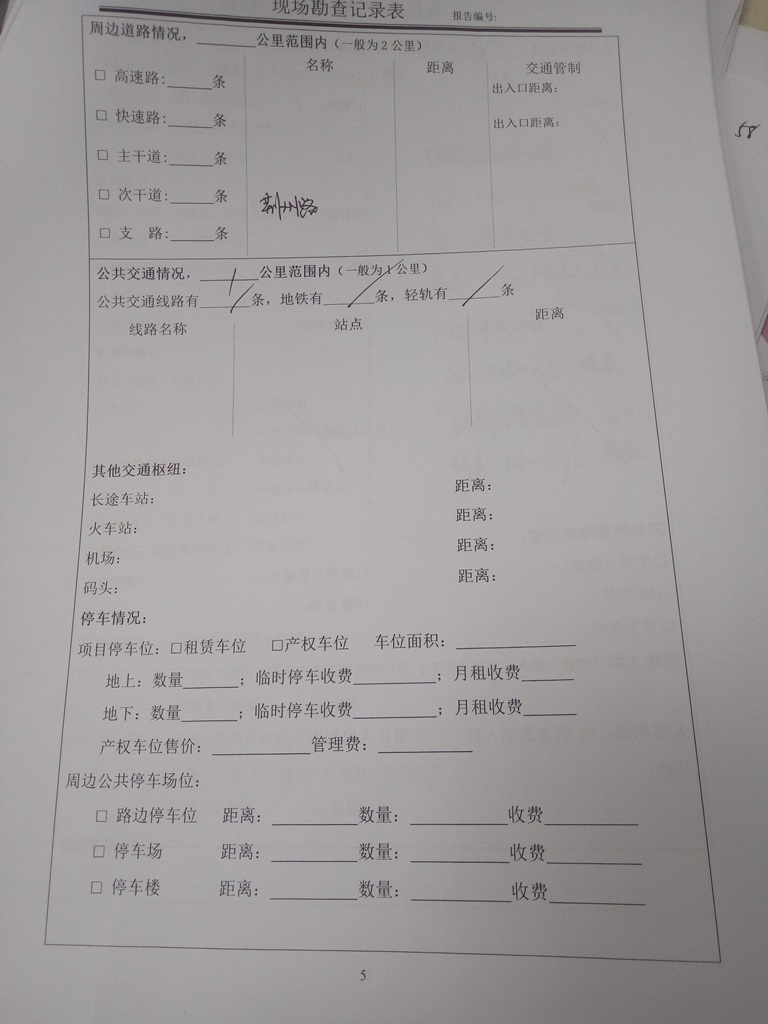 现场勘查记录表 报告编号:
周边道路情况，______公里范围内（一般为2公里）
名称 距离 交通管制
□ 高速路:_____条 出入口距离:
□ 快速路:_____条 出入口距离:
□ 主干道:_____条
□ 次干道:_____条 荆州路
□ 支 路:_____条
公共交通情况，______公里范围内（一般为1公里）
公共交通线路有__/__条，地铁有__/__条，轻轨有__/__条
线路名称 站点 距离
其他交通枢纽:
长途车站: 距离:
火车站: 距离:
机场: 距离:
码头: 距离:
停车情况:
项目停车位: □租赁车位 □产权车位 车位面积: ____________
地上: 数量______; 临时停车收费_________; 月租收费______
地下: 数量______; 临时停车收费_________; 月租收费______
产权车位售价: __________管理费: __________
周边公共停车场位:
□ 路边停车位 距离: _________数量: __________收费__________
□ 停车场 距离: _________数量: __________收费__________
□ 停车楼 距离: _________数量: __________收费__________
5
58